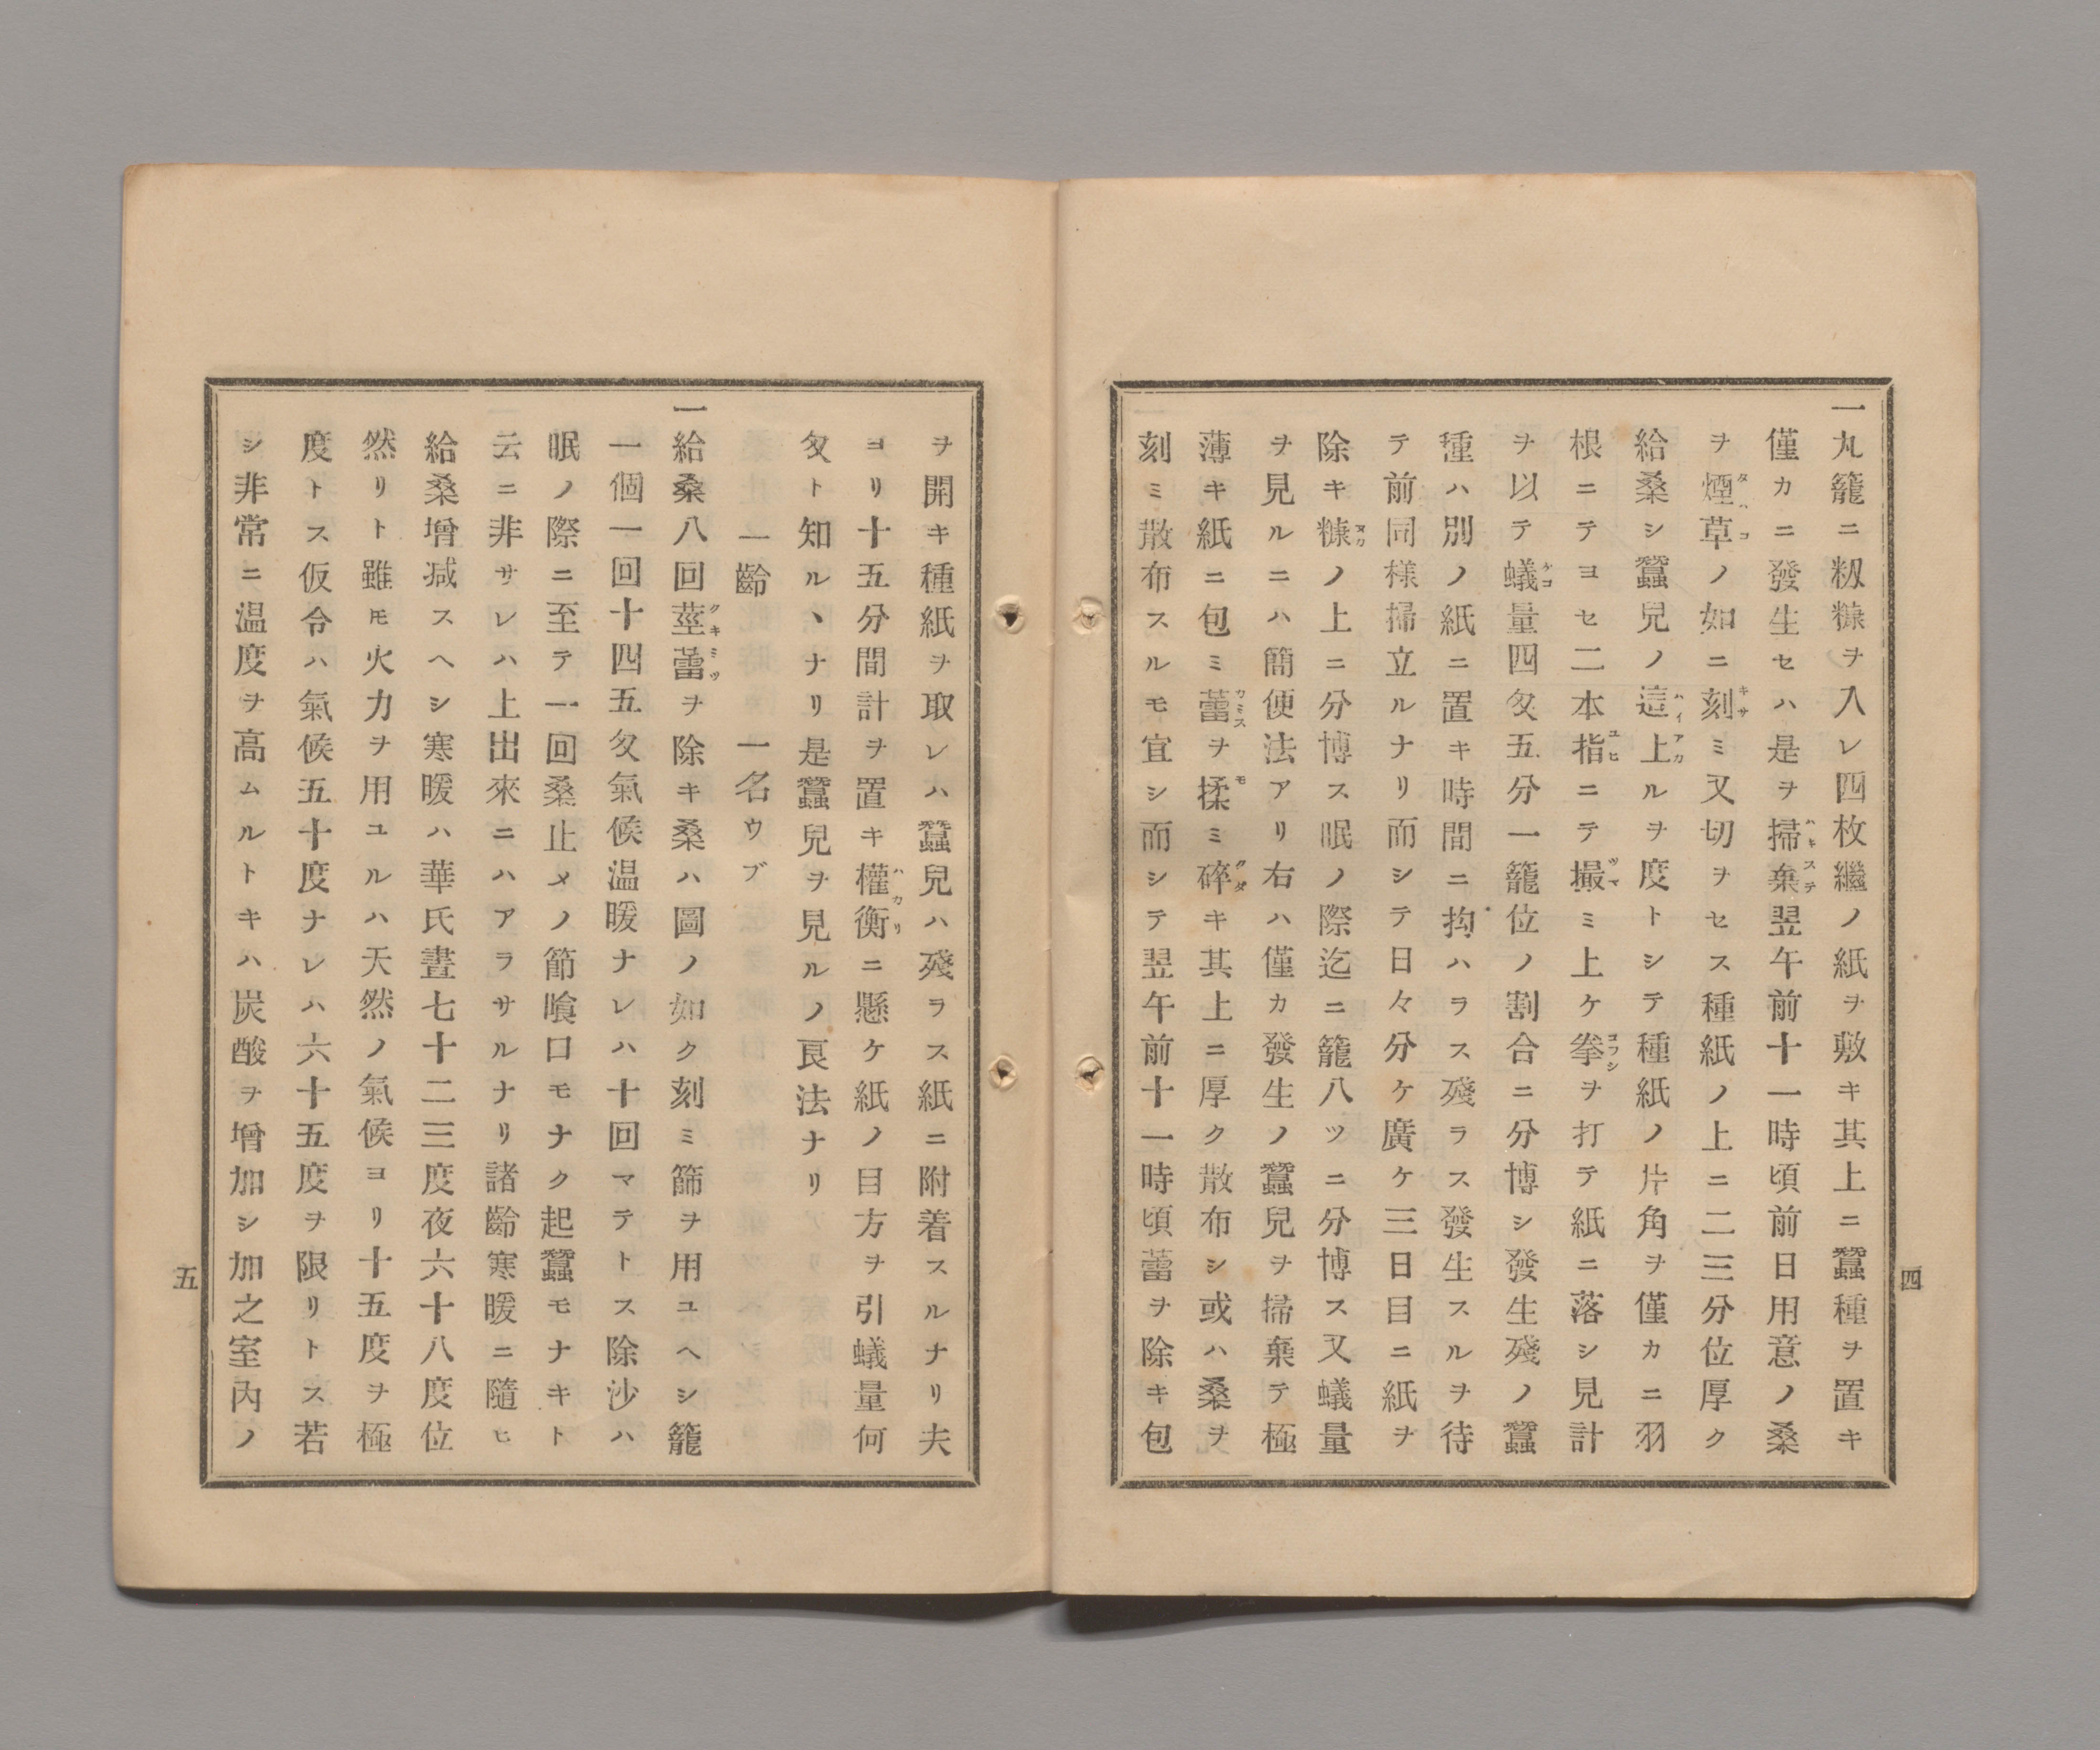 一丸籠ニ籾糠ヲ入レ四枚繼ノ紙ヲ敷キ其上ニ蠶種ヲ置キ
僅カニ發生セハ是ヲ掃棄翌午前十一時頃前日用意ノ桑
ヲ煙草ノ如ニ刻ミ又切ヲセス種紙ノ上ニ二三分位厚ク
給桑シ蠶兒ノ這上ルヲ度トシテ種紙ノ片角ヲ僅カニ羽
根ニテヨセ二本指ニテ撮ミ上ケ拳ヲ打テ紙ニ落シ見計
ヲ以テ蟻量四匁五分一籠位ノ割合ニ分博シ發生殘ノ蠶
種ハ別ノ紙ニ置キ時間ニ拘ハラス殘ラス發生スルヲ待
テ前同様掃立ルナリ而シテ日々分ケ廣ケ三日目ニ紙ヲ
除キ糠ノ上ニ分博ス眠ノ際迄ニ籠八ツニ分博ス又蟻量
ヲ見ルニハ簡便法アリ右ハ僅カ發生ノ蠶兒ヲ掃棄テ極
薄キ紙ニ包ミ蕾ヲ揉ミ碎キ其上ニ厚ク散布シ或ハ桑ヲ
刻ミ散布スルモ宜シ而シテ翌午前十一時頃蕾ヲ除キ包
四
ヲ開キ種紙ヲ取レハ蠶兒ハ殘ラス紙ニ附着スルナリ夫
ヨリ十五分間計ヲ置キ權衡ニ懸ケ紙ノ目方ヲ引蟻量何
匁ト知ルヽナリ是蠶兒ヲ見ルノ良法ナリ
一齡　一名ウブ
一給桑八回莖蕾ヲ除キ桑ハ圖ノ如ク刻ミ篩ヲ用ユヘシ籠
一個一回十四五匁氣候温暖ナレハ十回マテトス除沙ハ
眠ノ際ニ至テ一回桑止メノ節喰口モナク起蠶モナキト
云ニ非サレハ上出來ニハアラサルナリ諸齡寒暖ニ隨ヒ
給桑增减スヘシ寒暖ハ華氏晝七十二三度夜六十八度位
然リト雖𪜈火力ヲ用ユルハ天然ノ氣候ヨリ十五度ヲ極
度トス仮令ハ氣候五十度ナレハ六十五度ヲ限リトス若
シ非常ニ温度ヲ高ムルトキハ炭酸ヲ增加シ加之室內ノ
五